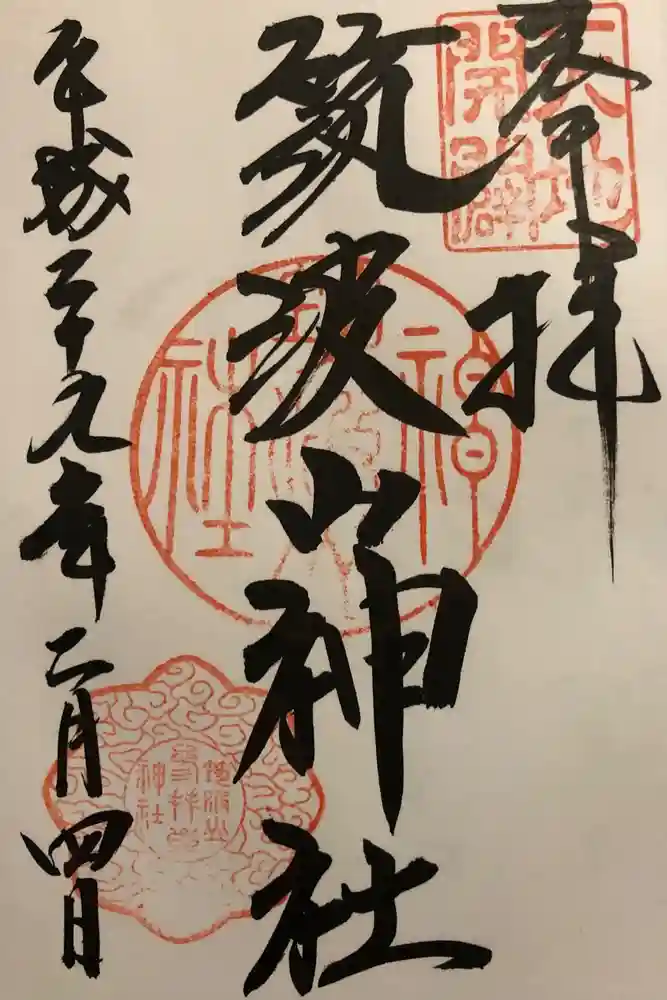 奉拝
天地
開闢
筑波山神社
平成二十九年二月四日